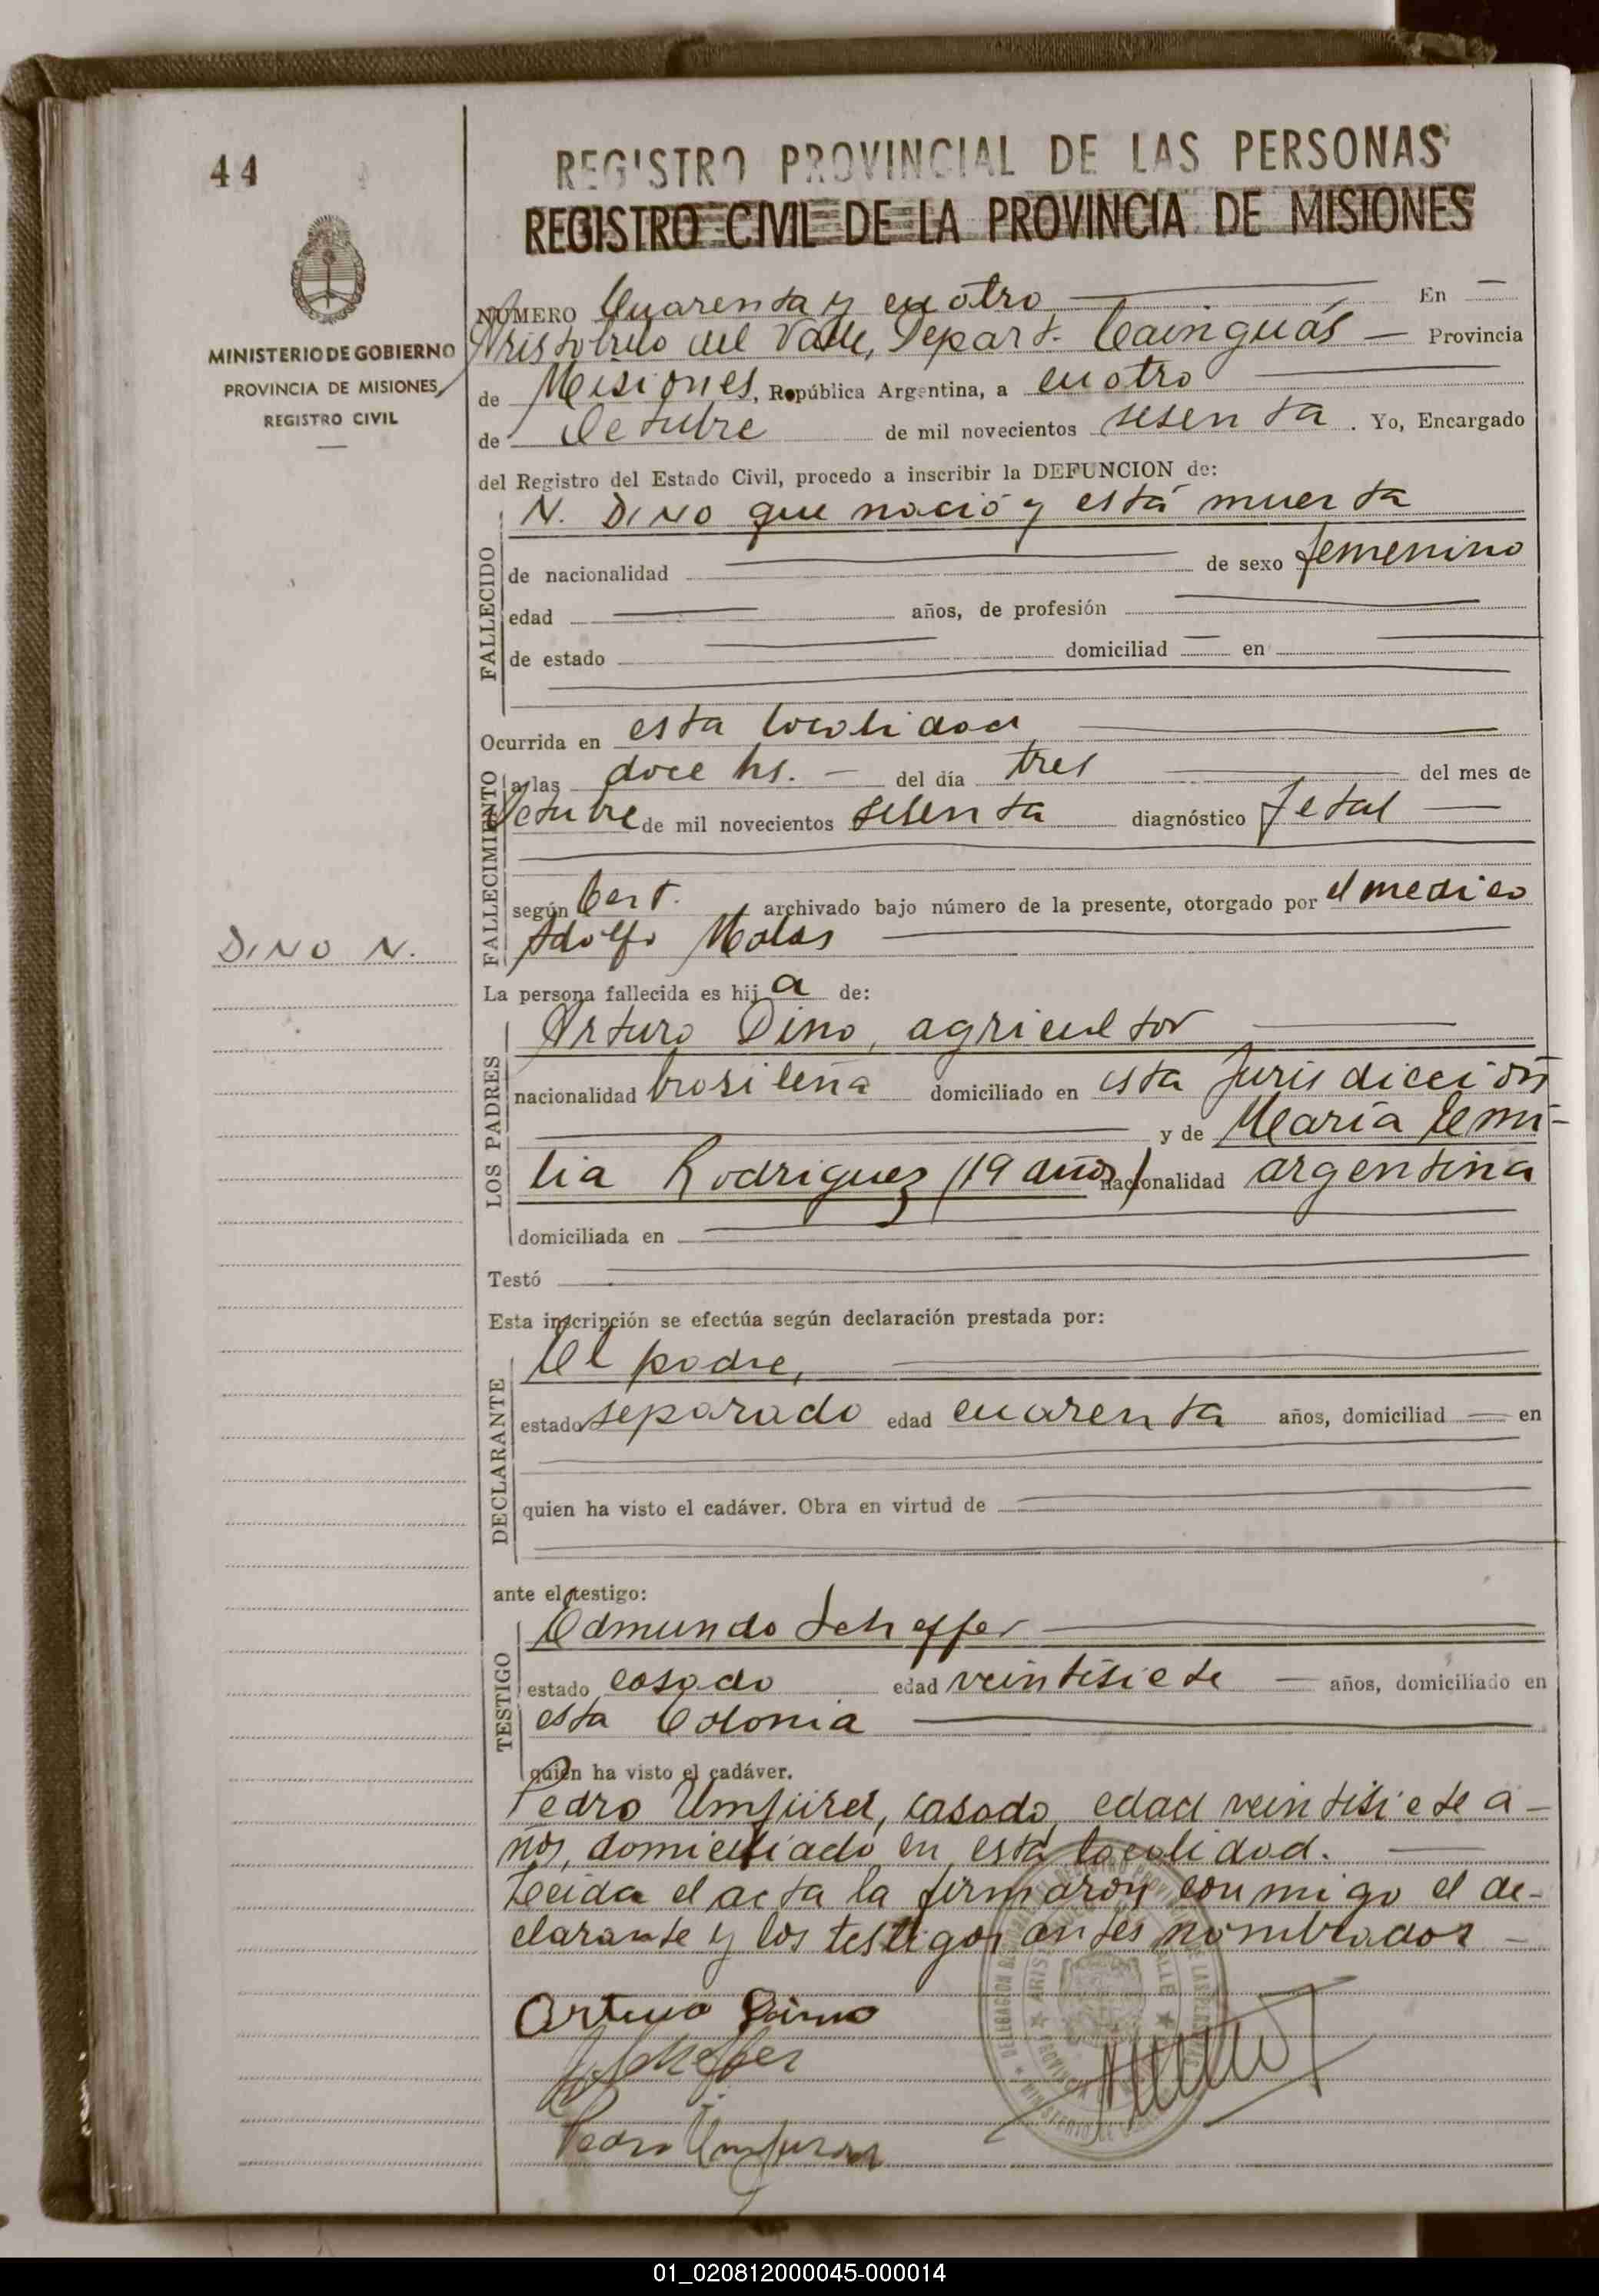 44
REGISTRO PROVINCIAL DE LAS PERSONAS
REGISTRO CIVIL DE LA PROVINCIA DE MISIONES
MINISTERIO DE GOBIERNO
PROVINCIA DE MISIONES
REGISTRO CIVIL
NÚMERO Cuarenta y cuatro En
Aristobulo del Valle, Depart. Cainguás Provincia
de Misiones, República Argentina, a cuatro
de Octubre de mil novecientos sesenta. Yo, Encargado
del Registro del Estado Civil, procedo a inscribir la DEFUNCION de:
FALLECIDO
N. DINO que nació y está muerta
de nacionalidad de sexo femenino
edad años, de profesión
de estado domiciliad en
FALLECIMIENTO
Ocurrida en esta localidad
a las doce hs. del día tres del mes de
Octubre de mil novecientos sesenta diagnóstico fetal
según Cert. archivado bajo número de la presente, otorgado por el medico
Adolfo Molas
DINO N.
La persona fallecida es hij a de:
LOS PADRES
Arturo Dino, agricultor
nacionalidad brasileña domiciliado en esta Jurisdicción
y de María Emi-
lia Rodriguez (19 años) nacionalidad argentina
domiciliada en
Testó
Esta inscripción se efectúa según declaración prestada por:
DECLARANTE
El padre,
estado separado edad cuarenta años, domiciliad en
quien ha visto el cadáver. Obra en virtud de
ante el testigo:
TESTIGO
Edmundo Scheffer
estado casado edad veintisiete años, domiciliado en
esta Colonia
quien ha visto el cadáver.
Pedro casado, edad veintisiete a-
ños, domiciliado en esta localidad.
Leída el acta la firmaron conmigo el de-
clarante y los testigos antes nombrados
Arturo Dino
Scheffer
Pedro
01_020812000045-000014